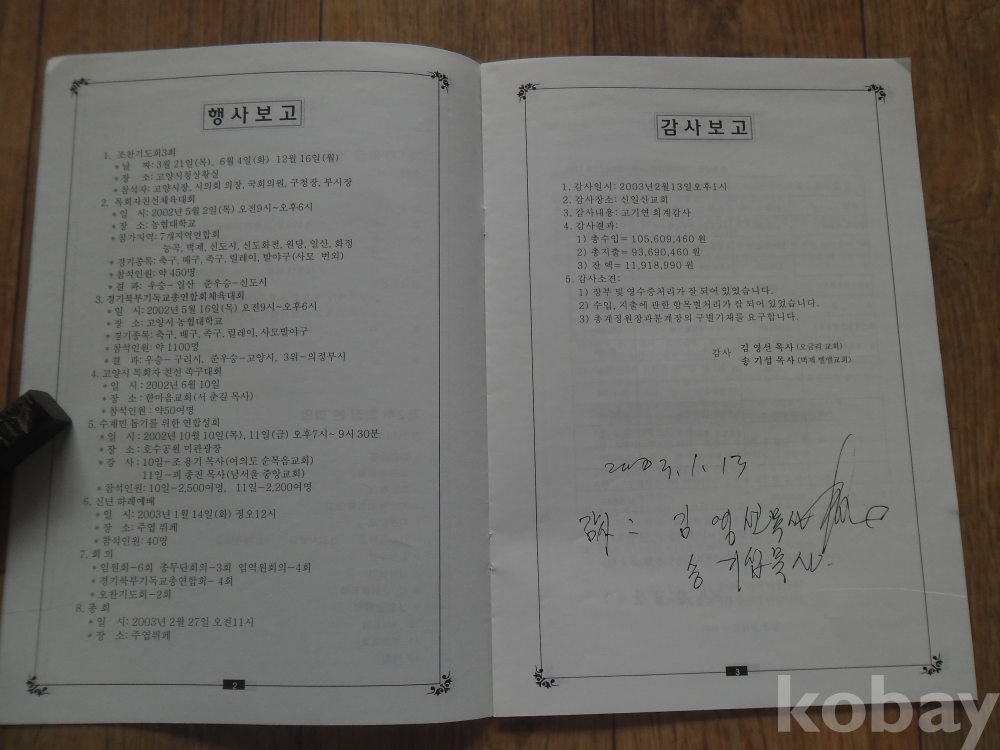 행사보고
1. 조찬기도회3회
* 날 짜: 3월 21일(목), 6월 4일(화) 12월 16일(월)
* 장 소: 고양시청상황실
* 참석자: 고양시장, 시의회 의장, 국회의원, 구청장, 부시장
2. 목회자친선체육대회
* 일 시: 2002년 5월 2일(목) 오전9시~오후6시
* 장 소: 농협대학교
* 참가지역: 7개지역연합회
능곡, 벽제, 신도시, 신도화전, 원당, 일산, 화정
* 경기종목: 축구, 배구, 족구, 릴레이, 발야구(사모 번외)
* 참석인원: 약 450명
* 결 과: 우승-일산 준우승-신도시
3. 경기북부기독교총연합회체육대회
* 일 시: 2002년 5월 16일(목) 오전9시~오후6시
* 장 소: 고양시 농협대학교
* 경기종목: 축구, 배구, 족구, 릴레이, 사모발야구
* 참석인원: 약 1100명
* 결 과: 우승- 구리시, 준우승-고양시, 3위-의정부시
4. 고양시 목회자 친선 족구대회
* 일 시: 2002년 6월 10일
* 장 소: 한마음교회(서 춘길 목사)
* 참석인원 : 약50여명
5. 수재민 돕기를 위한 연합성회
* 일 시: 2002년 10월 10일(목), 11일(금) 오후7시~ 9시 30분
* 장 소: 호수공원 미관광장
* 강 사: 10일-조 용기 목사(여의도 순복음교회)
11일-피 종진 목사(남서울 중앙교회)
* 참석인원: 10일-2,500여명, 11일-2,200여명
6. 신년 하례예배
* 일 시: 2003년 1월 14일(화) 정오12시
* 장 소: 주엽 뷔페
* 참석인원: 40명
7. 회 의
* 임원회-6회 총무단회의-3회 임역원회의-4회
* 경기북부기독교총연합회- 4회
* 오찬기도회-2회
8. 총 회
* 일 시: 2003년 2월 27일 오전11시
* 장 소: 주엽뷔페
2
감사보고
1. 감사일시: 2003년2월13일오후1시
2. 감사장소: 신일산교회
3. 감사내용: 고기연 회계감사
4. 감사결과:
1) 총수입= 105,609,460 원
2) 총지출= 93,690,460 원
3) 잔 액= 11,918,990 원
5. 감사소견:
1) 장부 및 영수증처리가 잘 되어 있었습니다.
2) 수입, 지출에 관한 항목별처리가 잘 되어 있었습니다.
3) 총계정원장과분계장의 구별기재를 요구합니다.
감사 김 영선 목사 (오금리 교회)
송 기섭 목사 (벽제 벧엘교회)
2003. 1. 13
감사 : 김 영선목사
송 기섭목사.
3
kobay